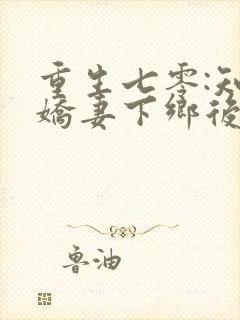 重生七零:知
嬌妻下鄉後
魯油